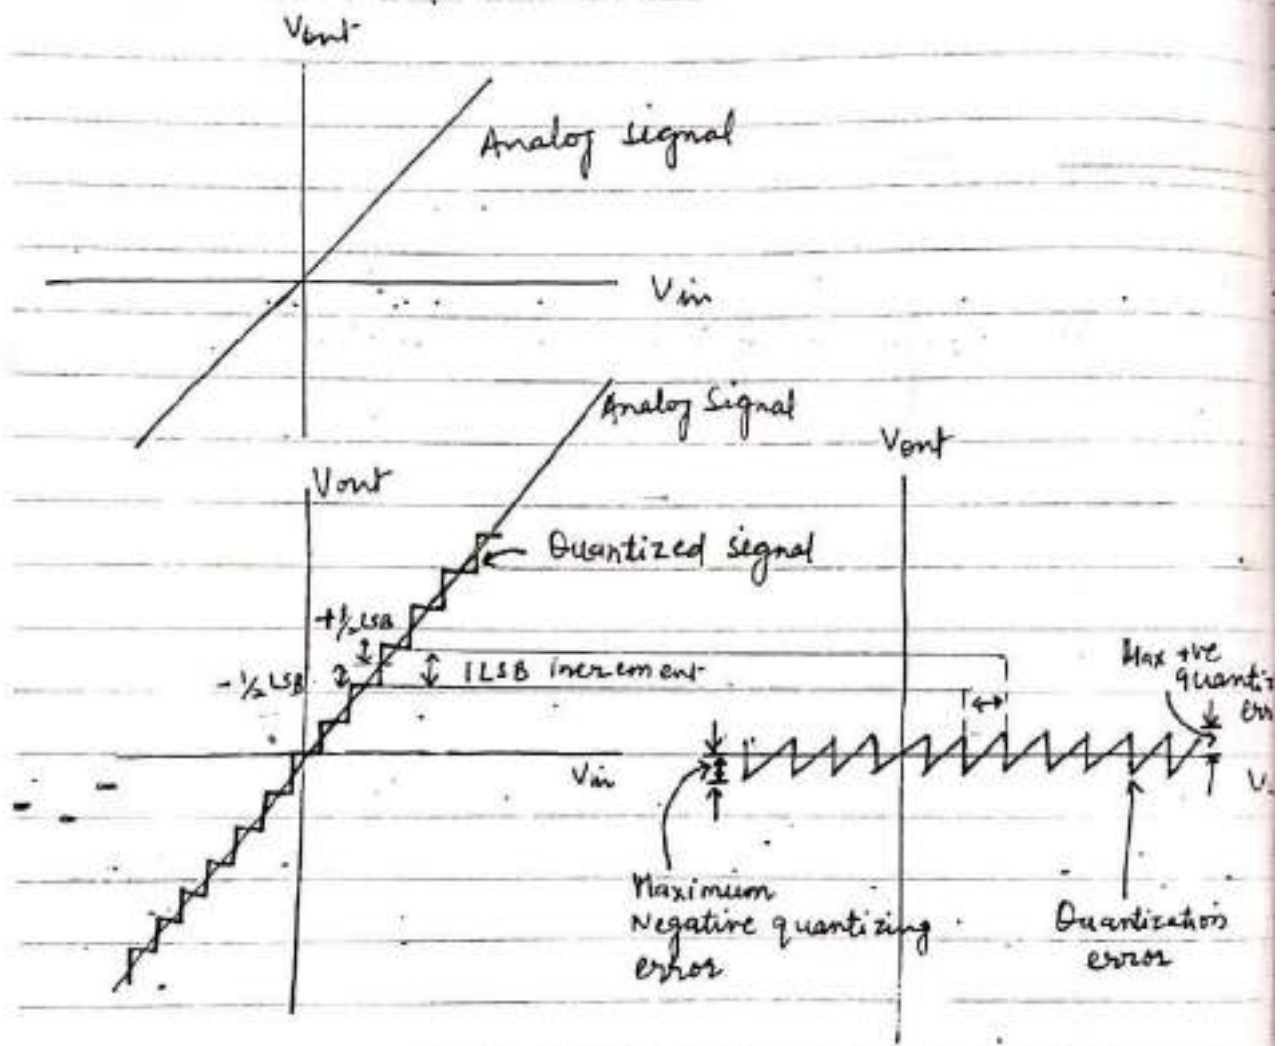 Vout
Analog signal
Vin
Analog Signal
Vout
Vout
Quantized signal
+½ LSB
-½ LSB
1LSB increment
Max +ve
quanti
err
Vin
V
Maximum
Negative quantizing
error
Quantization
error